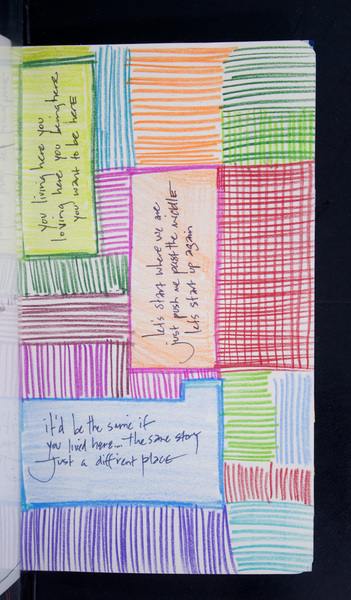 you living here you
loving here you being here
you want to be here
let's start where we are
just push me past the middle
let's start up again
it'd be the same if
you lived here... the same story
just a diffrent place